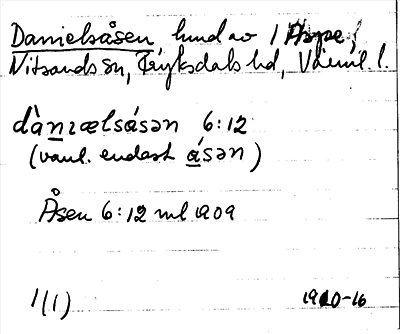 Danielsåsen, hmd av 1 Aspe,
Vitsands sn, Fryksdals hd, Värml. l.
dàniælsåsən 6:12
(vanl. endast åsən)
Åsen 6:12 ml 1909
1(1) 1910-16